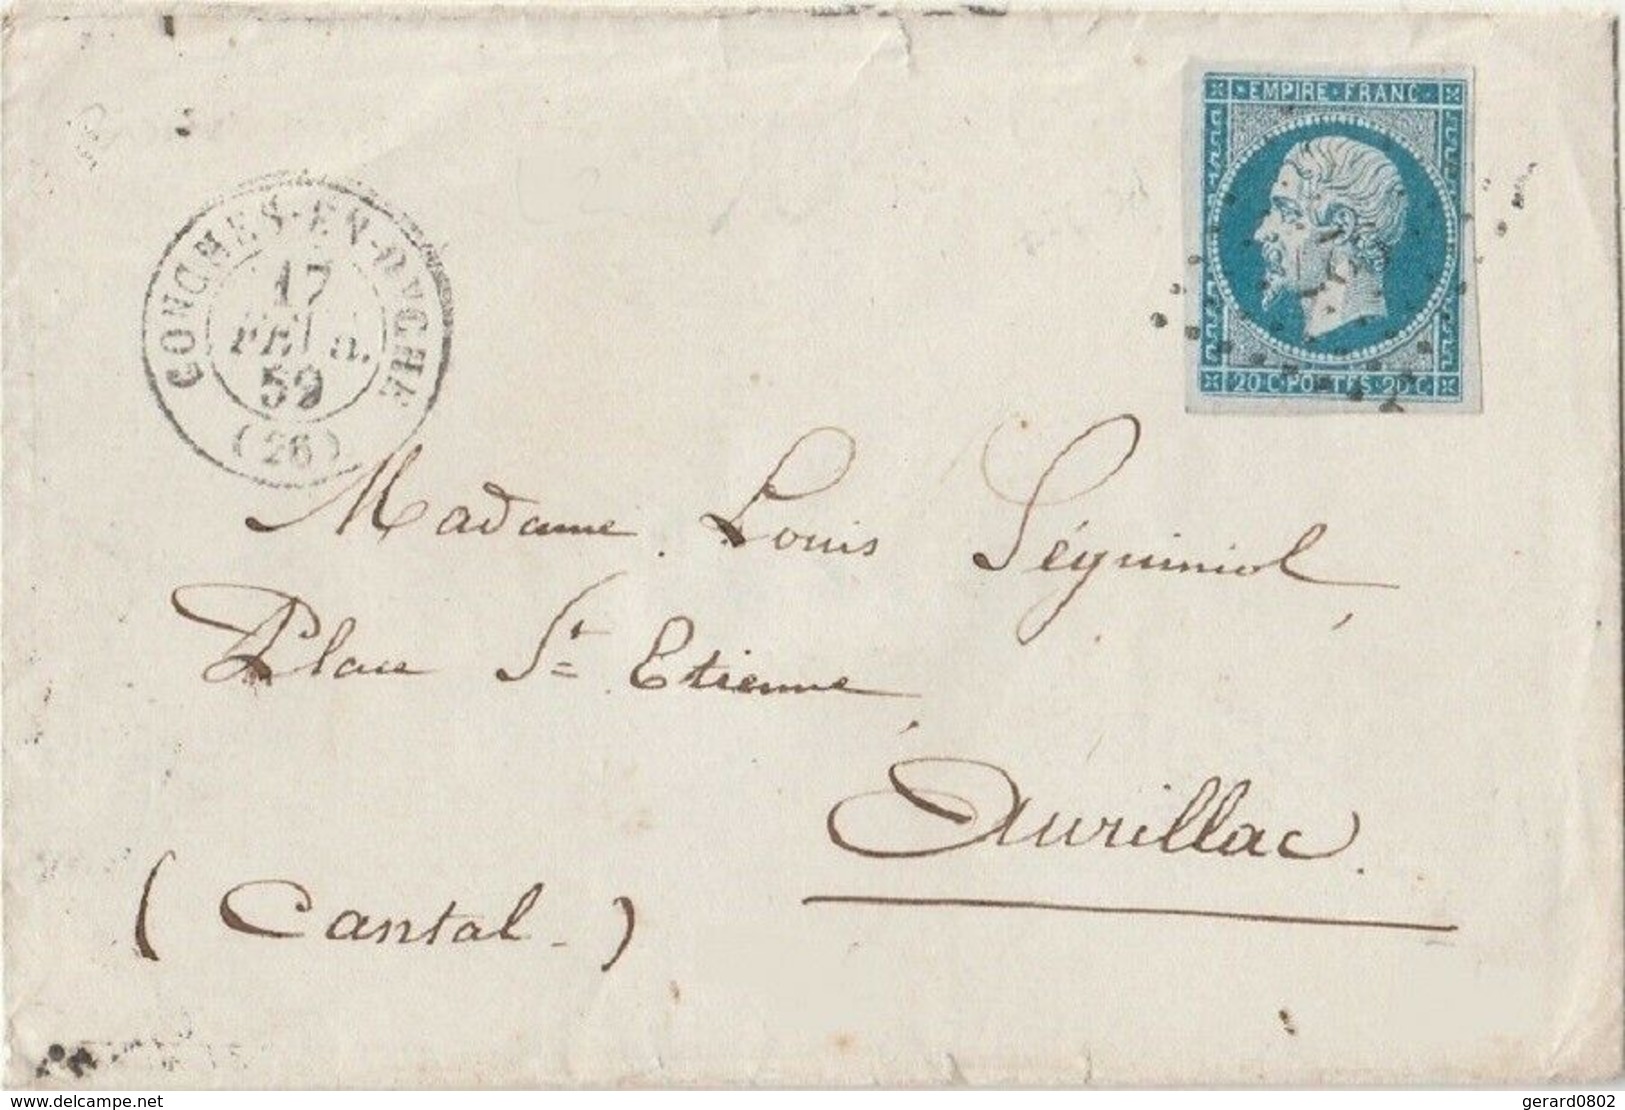 EMPIRE · FRANC ·
CONCHES-EN-OUCHE
17
FEVR.
59
(26)
20·C·POSTES·20·C
Madame Louis Séguiniol,
Place St Etienne,
Aurillac.
(Cantal-)
www.delcampe.net
gerard0802